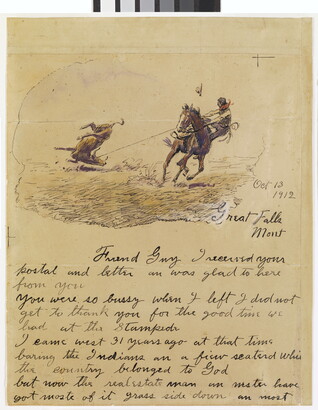 Oct 13
1912
Great Falls
Mont
Friend Guy I received your
postal and letter an was glad to here
from you
You were so bussy when I left I did not
get to thank you for the good time we
had at the Stampede
I came west 31 years ago at that time
baring the Indians an a fiew scaterd whites
the country belonged to God
but now the real estate man an nster have
got moste of it grass side down an most